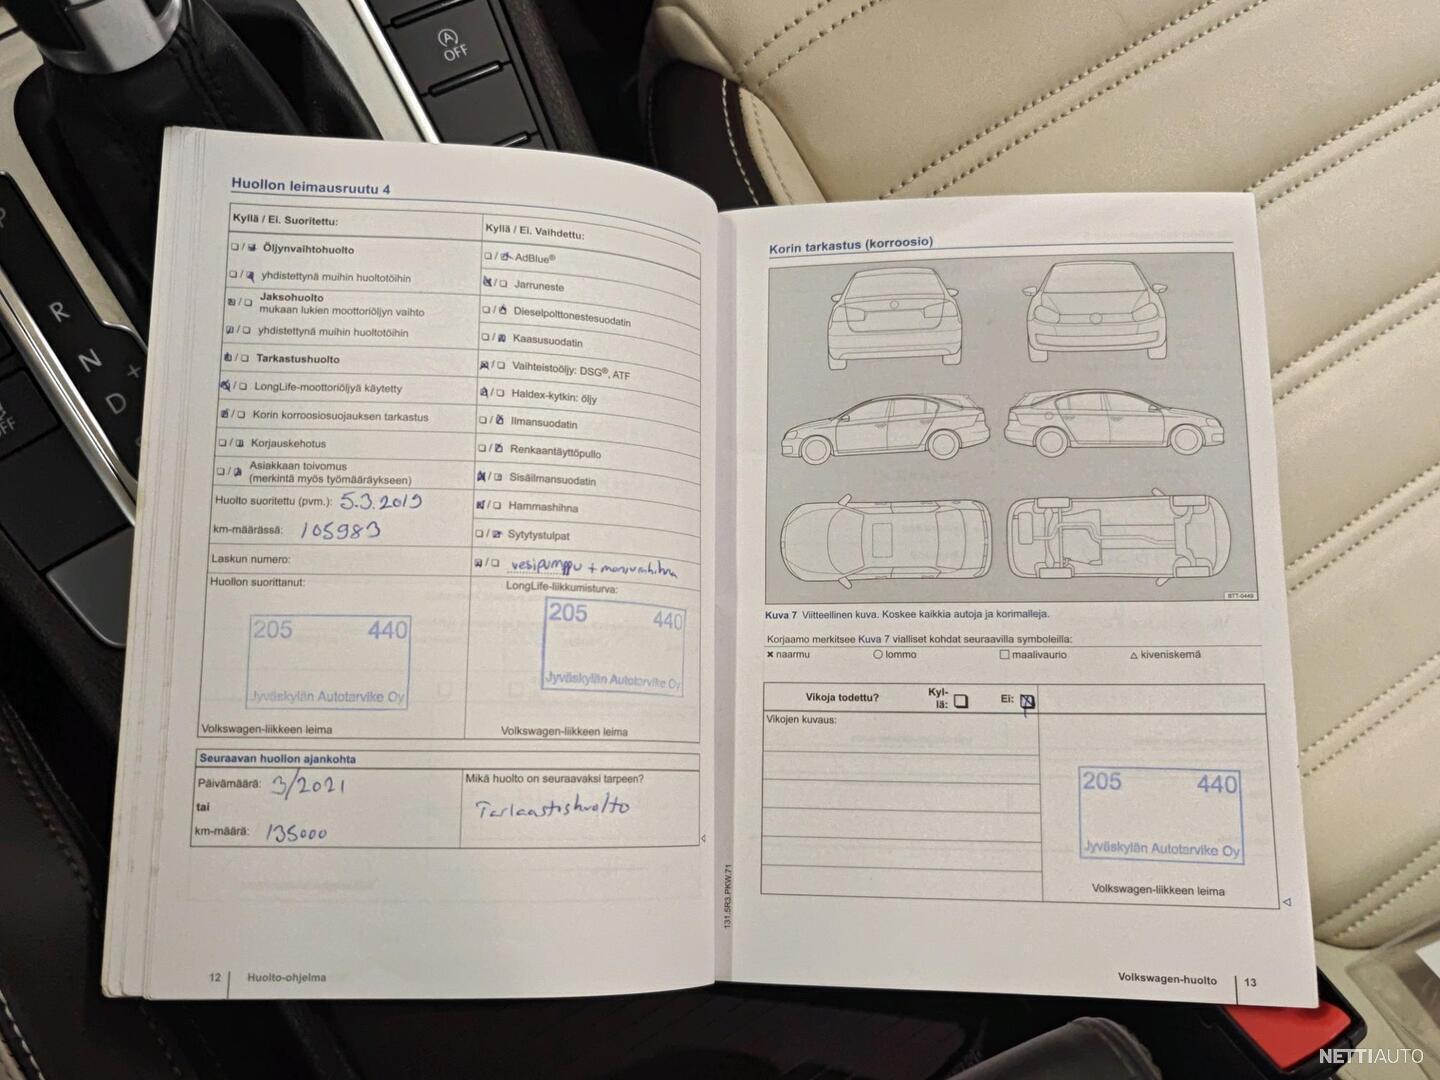 OFF
R
N
D
Huollon leimausruutu 4
Kyllä / Ei. Suoritettu:
Öljynvaihtohuolto
yhdistettynä muihin huoltotöihin
Jaksohuolto
mukaan lukien moottoriöljyn vaihto
yhdistettynä muihin huoltotöihin
Tarkastushuolto
LongLife-moottoriöljyä käytetty
Korin korroosiosuojauksen tarkastus
Korjauskehotus
Asiakkaan toivomus
(merkintä myös työmääräykseen)
Huolto suoritettu (pvm.): 5.3.2019
km-määrässä: 105983
Laskun numero:
Huollon suorittanut:
205 440
Jyväskylän Autotarvike Oy
Volkswagen-liikkeen leima
Kyllä / Ei. Vaihdettu:
AdBlue®
Jarruneste
Dieselpolttonestesuodatin
Kaasusuodatin
Vaihteistoöljy: DSG®, ATF
Haldex-kytkin: öljy
Ilmansuodatin
Renkaantäyttöpullo
Sisäilmansuodatin
Hammashihna
Sytytystulpat
vesipumppu +
LongLife-liikkumisturva:
205 440
Jyväskylän Autotarvike Oy
Volkswagen-liikkeen leima
Seuraavan huollon ajankohta
Päivämäärä: 3/2021
tai
km-määrä: 135000
Mikä huolto on seuraavaksi tarpeen?
Tarkastushuolto
12 Huolto-ohjelma
131.5R3.PKW.71
Korin tarkastus (korroosio)
BTT-0449
Kuva 7 Viitteellinen kuva. Koskee kaikkia autoja ja korimalleja.
Korjaamo merkitsee Kuva 7 vialliset kohdat seuraavilla symboleilla:
naarmu lommo maalivaurio kiveniskemä
Vikoja todettu? Kyl-
lä: Ei:
Vikojen kuvaus:
205 440
Jyväskylän Autotarvike Oy
Volkswagen-liikkeen leima
Volkswagen-huolto 13
NETTIAUTO